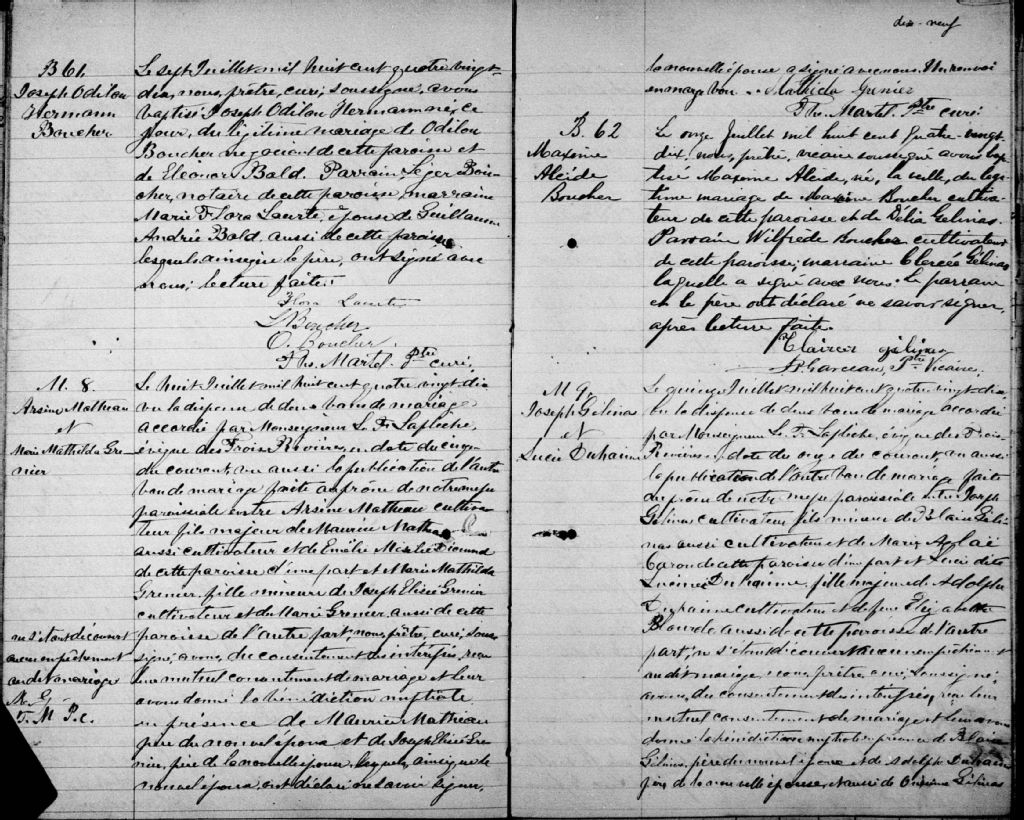 B 61.
Joseph Odilon
Hermann
Boucher
Le sept Juillet mil huit cent quatre vingt-
dix, nous, prêtre, curé, soussigné, avons
baptisé Joseph Odilon Hermann né, ce
jour, du légitime mariage de Odilon
Boucher négociant de cette paroisse et
de Eléonor Bald. Parrain Léger Bou-
cher, notaire de cette paroisse, marraine
Marie Flora épouse de Guillaume
André Bald. aussi de cette paroisse
lesquels ainsi que le père, ont signé avec
nous; lecture faite.
Flora
L. Boucher
O. Boucher
Martel Ptre curé.
M. 8.
Arsène Matheau
et
Marie Mathilda Gre-
nier
Le huit Juillet mil huit cent quatre vingt dix
vu la dispense de deux bans de mariage
accordée par Monseigneur L. F. Laflèche,
évêque des Trois Rivières, en date du cinq
du courant, vu aussi la publication de l'autre
ban de mariage faite au prône de notre messe
paroissiale entre Arsène Matheau cultiva-
teur fils majeur de Maurice Matheau
aussi cultivateur et de Emélie
de cette paroisse d'une part et Marie Mathilda
Grenier, fille mineure de Joseph Elisée Grenier
cultivateur et de Marie Grenier aussi de cette
paroisse de l'autre part, nous, prêtre, curé, sous-
signé, avons, du consentement des intéressés, reçu
leur mutuel consentement de mariage et leur
avons donné la bénédiction nuptiale
en présence de Maurice Matheau
père du nouvel époux et de Joseph Elisée Gre-
nier, père de la nouvelle épouse, lesquels, ainsi que le
nouvel époux, ont déclaré ne savoir signer,
ne s'étant découvert
aucun empêchement
au dit mariage
M. G
F. M. P. c.
dix-neuf
la nouvelle épouse a signé avec nous. Un renvoi
en marge bon. Mathilda Grenier
Martel. Ptre curé
B. 62
Maxime
Alcide
Boucher
Le onze Juillet mil huit cent quatre-vingt
dix, nous, prêtre, vicaire soussigné avons bap-
tisé Maxime Alcide, né, la veille, du légi-
time mariage de Maxime Boucher cultiva-
teur de cette paroisse et de Délia Gélinas.
Parrain Wilfrède Boucher cultivateur
de cette paroisse; marraine Gélinas
laquelle a signé avec nous. Le parrain
et le père ont déclaré ne savoir signer,
après lecture faite.
Gélinas
Garceau, Ptre Vicaire.
M 9.
Joseph Gélinas
et
Lucie Duhaime
Le quinze Juillet mil huit cent quatre vingt dix
vu la dispense de deux bans de mariage accordée
par Monseigneur L. F. Laflèche, évêque des Trois
Rivières, date du onze du courant, vu aussi
la publication de l'autre ban de mariage faite
au prône de notre messe paroissiale entre Joseph
Gélinas cultivateur, fils mineur de Blaise Géli-
nas aussi cultivateur et de Marie Aglaé
Caron de cette paroisse d'une part et Lucie dite
Duhaime, fille majeure de Adolphe
Duhaime cultivateur et de feue Elizabeth
aussi de cette paroisse de l'autre
part, ne s'étant découvert aucun empêchement
au dit mariage, nous, prêtre, curé, soussigné,
avons, du consentement des intéressés, reçu leur
mutuel consentement de mariage et leur avons
donné la bénédiction nuptiale en présence de Blaise
Gélinas, père du nouvel époux et de Adolphe Duhaime
père de la nouvelle épouse et aussi de Gélinas